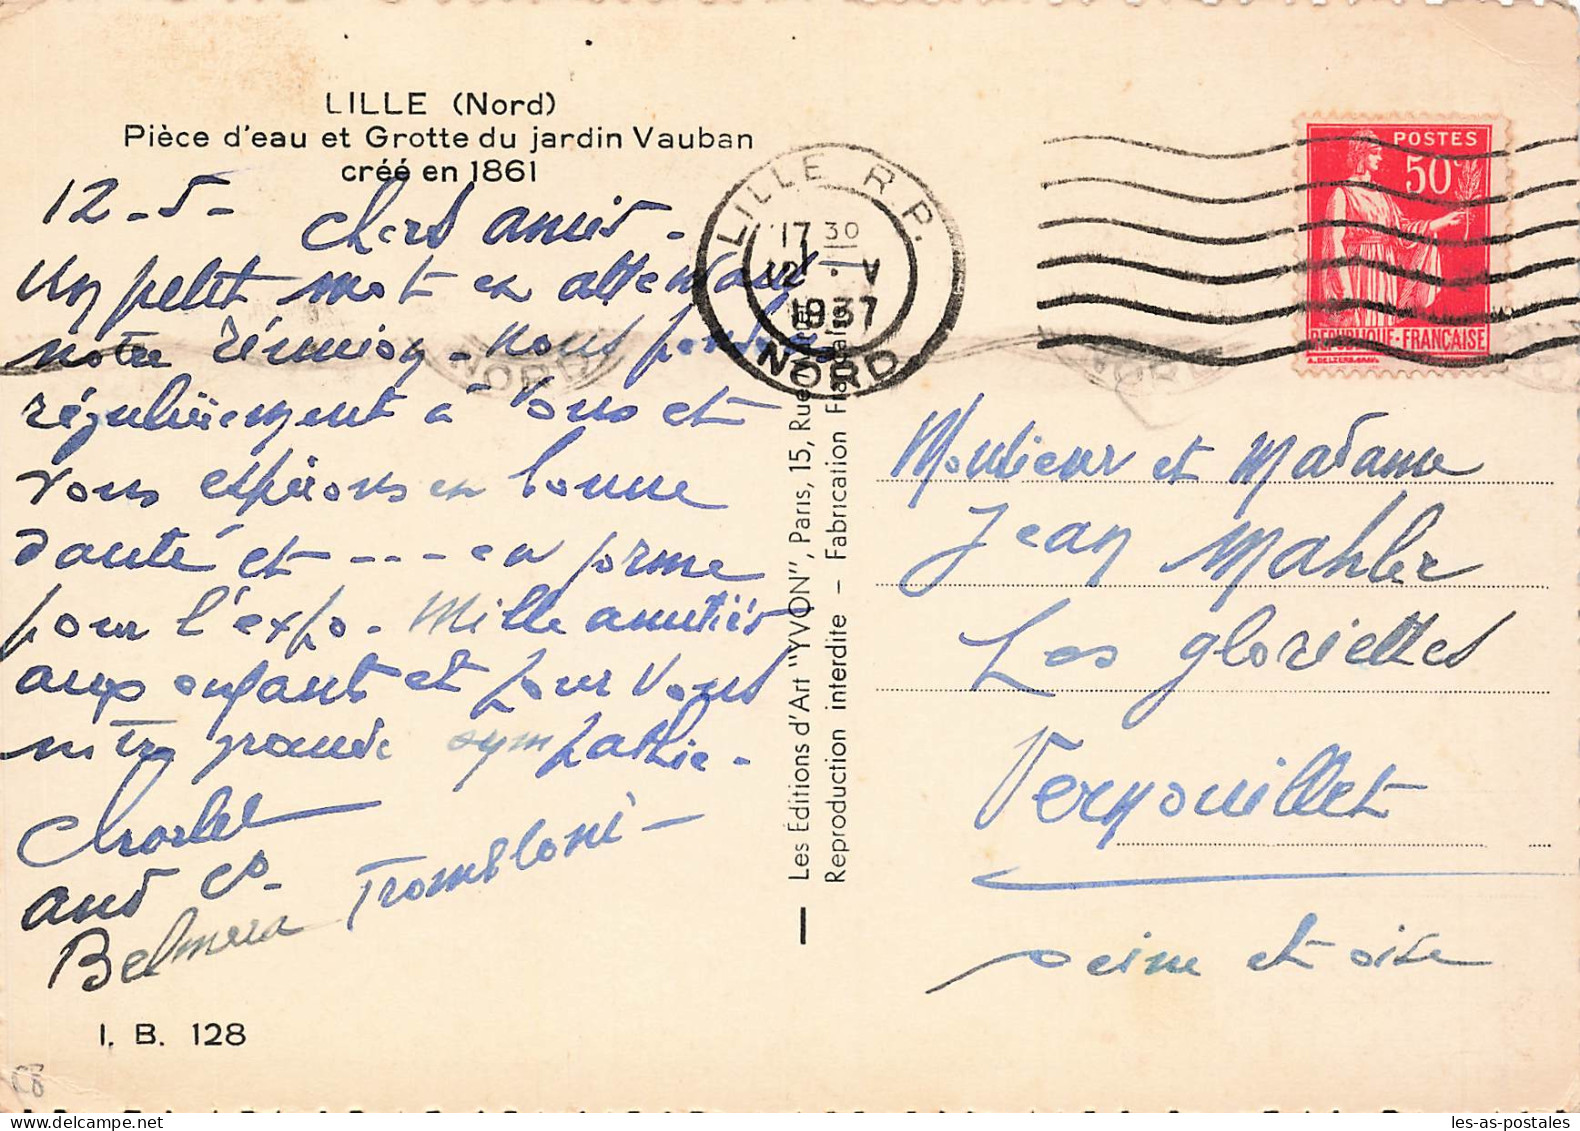 LILLE (Nord)
Pièce d'eau et Grotte du jardin Vauban
créé en 1861
12-5-
Chers amis -
Un petit mot en attendant
notre réunion - nous pensons
régulièrement à Vous et
vous espérons en bonne
santé et --- en forme
pour l'expo. Mille amitiés
aux enfants et pour Vous
notre grande sympathie -
and Co -
Tromboloni -
I. B. 128
Les Éditions d'Art "YVON", Paris, 15, Rue
Reproduction interdite - Fabrication Française
LILLE R.P.
17 30
12 . V
1937
NORD
POSTES
50c
REPUBLIQUE-FRANÇAISE
Monsieur et Madame
Jean Mahler
Les gloriettes
Vernouillet
Seine et oise
les-as-postales